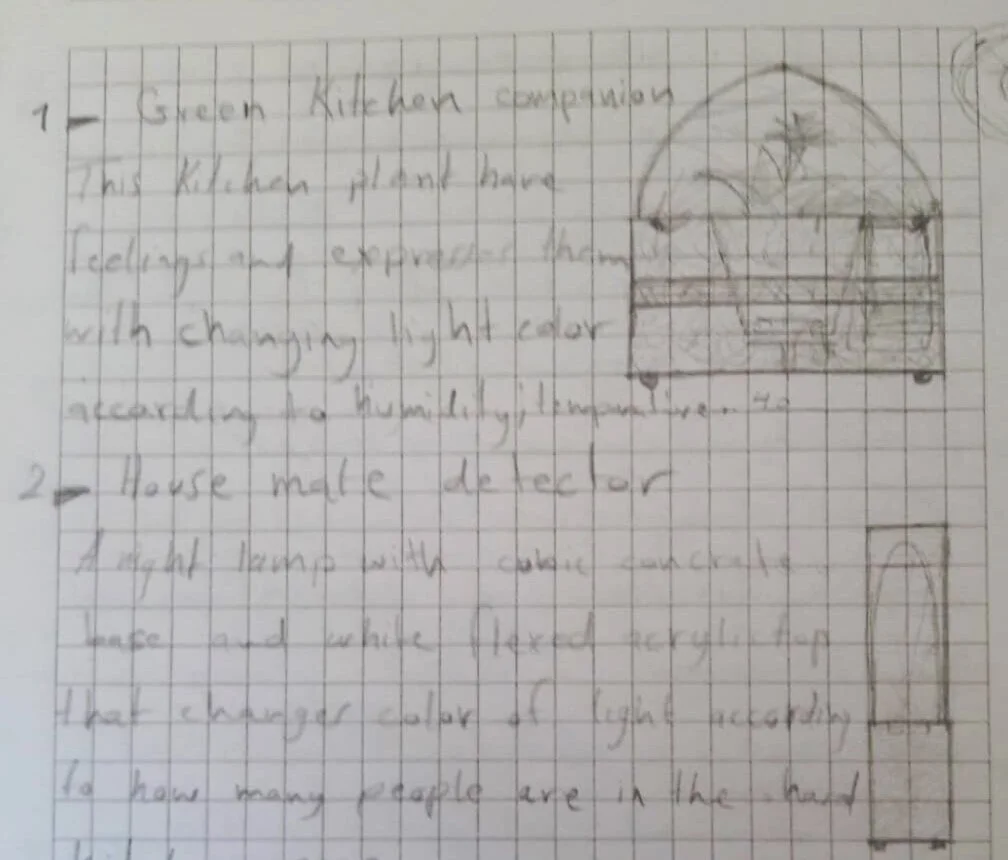 1 - Green Kitchen companion
This Kitchen plant have
feelings and expresses them
with changing light color
according to humidity, temperative..
2 - House mate detector
A night lamp with cubic concrate
base and white flexed acrylic top
that changes color of light according
to how many people are in the